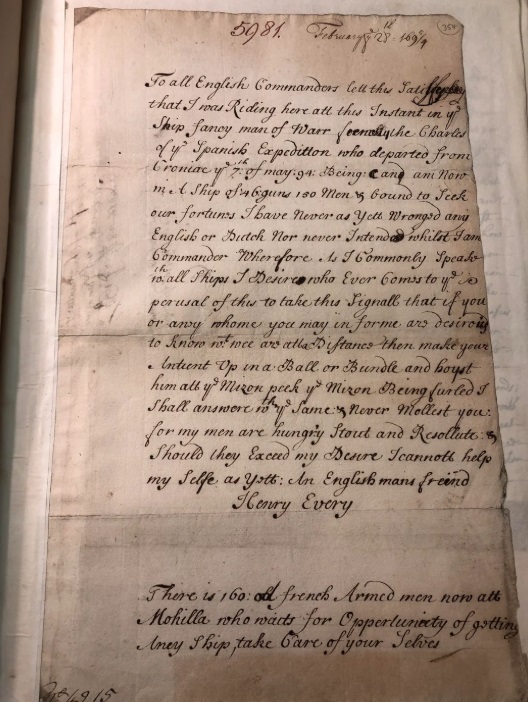 5981.
359
February yᵉ 28ᵗʰ 169⅘
To all English Commanders lett this Satisffye
that I was Riding here att this Instant in yᵉ
Ship fancy man of Warr formerly the Charles
of yᵉ Spanish Expeditton who departed from
Croniae yᵉ 7ᵗʰ of may: 94: Being: and am Now
in A Ship of 46 guns 150 Men & bound to Seek
our fortuns I have Never as Yett Wronged any
English or Dutch Nor never Intend whilst I am
Commander Wherefore As I Commonly Speake
wᵗʰ all Ships I Desire who Ever Comes to yᵉ
perusal of this to take this Signall that if you
or anvy whome you may in forme are desirous
to Know wᵗ wee are att a Distance then make your
Antient Up in a Ball or Bundle and hoyst
him att yᵉ Mizon peek yᵉ Mizon Being furled I
Shall answere wᵗʰ yᵉ Same & Never Mollest you:
for my men are hungry Stout and Resollute: &
Should they Exceed my Desire I cannott help
my Selfe as Yett: An English mans freind
Henry Every
There is 160: odd french Armed men now att
Mohilla who waits for Oppertuniaty of getting
Aney Ship, take Care of your Selves